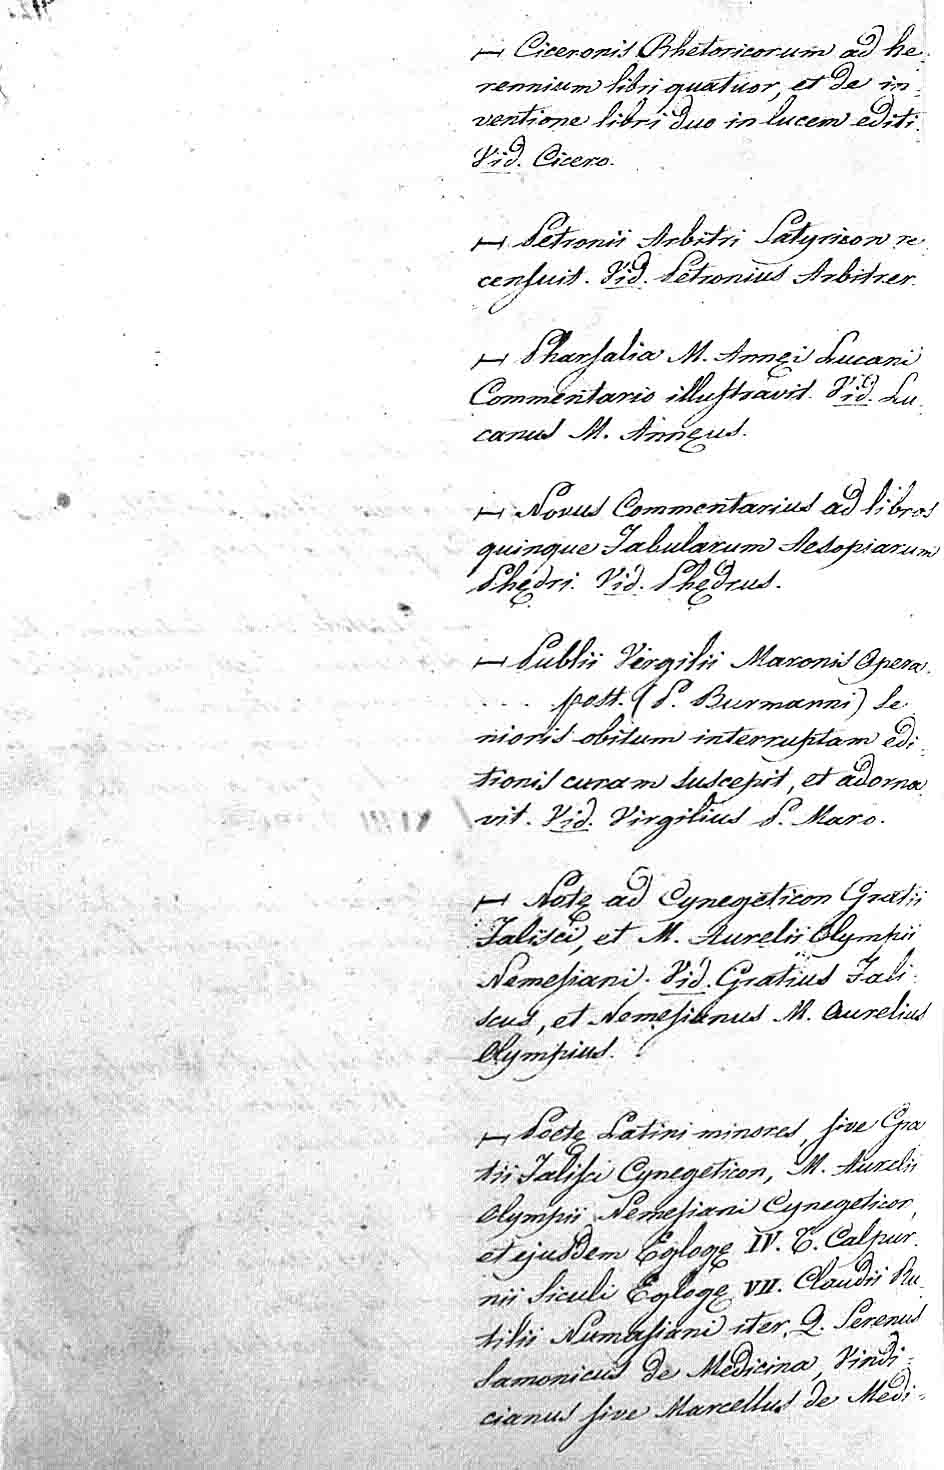 — Ciceronis Rhetoricorum ad he-
rennium libri quatuor, et de in-
ventione libri duo in lucem editi.
Vid. Cicero.
— Petronii Arbitri Satyricon re-
censuit. Vid. Petronius Arbitrer.
— Pharsalia M. Annęi Lucani
Commentario illustravit. Vid. Lu-
canus M. Annęus.
— Novus Commentarius ad libros
quinque Fabularum Aesopiarum
Phędri. Vid. Phędrus.
— Publii Virgilii Maronis Opera.
... post. (P. Burmanni) Se-
nioris obitum interruptam edi-
tionis curam suscepit, et adorna-
vit. Vid. Virgilius P. Maro.
— Notę ad Cynegeticon Gratii
Falisci, et M. Aurelii Olympii
Nemesiani. Vid. Gratius Fali-
scus, et Nemesianus M. Aurelius
Olympius.
— Poetę Latini minores, sive Gra
tii Falisci Cynegeticon, M. Aurelii
Olympii Nemesiani Cynegeticon,
et ejusdem Eglogę IV. T. Calpur-
nii Siculi Eglogę VII. Claudii Ru-
tilii Numasiani iter, Q. Serenus
Samonicus de Medicina, Vindi-
cianus sive Marcellus de Medi-